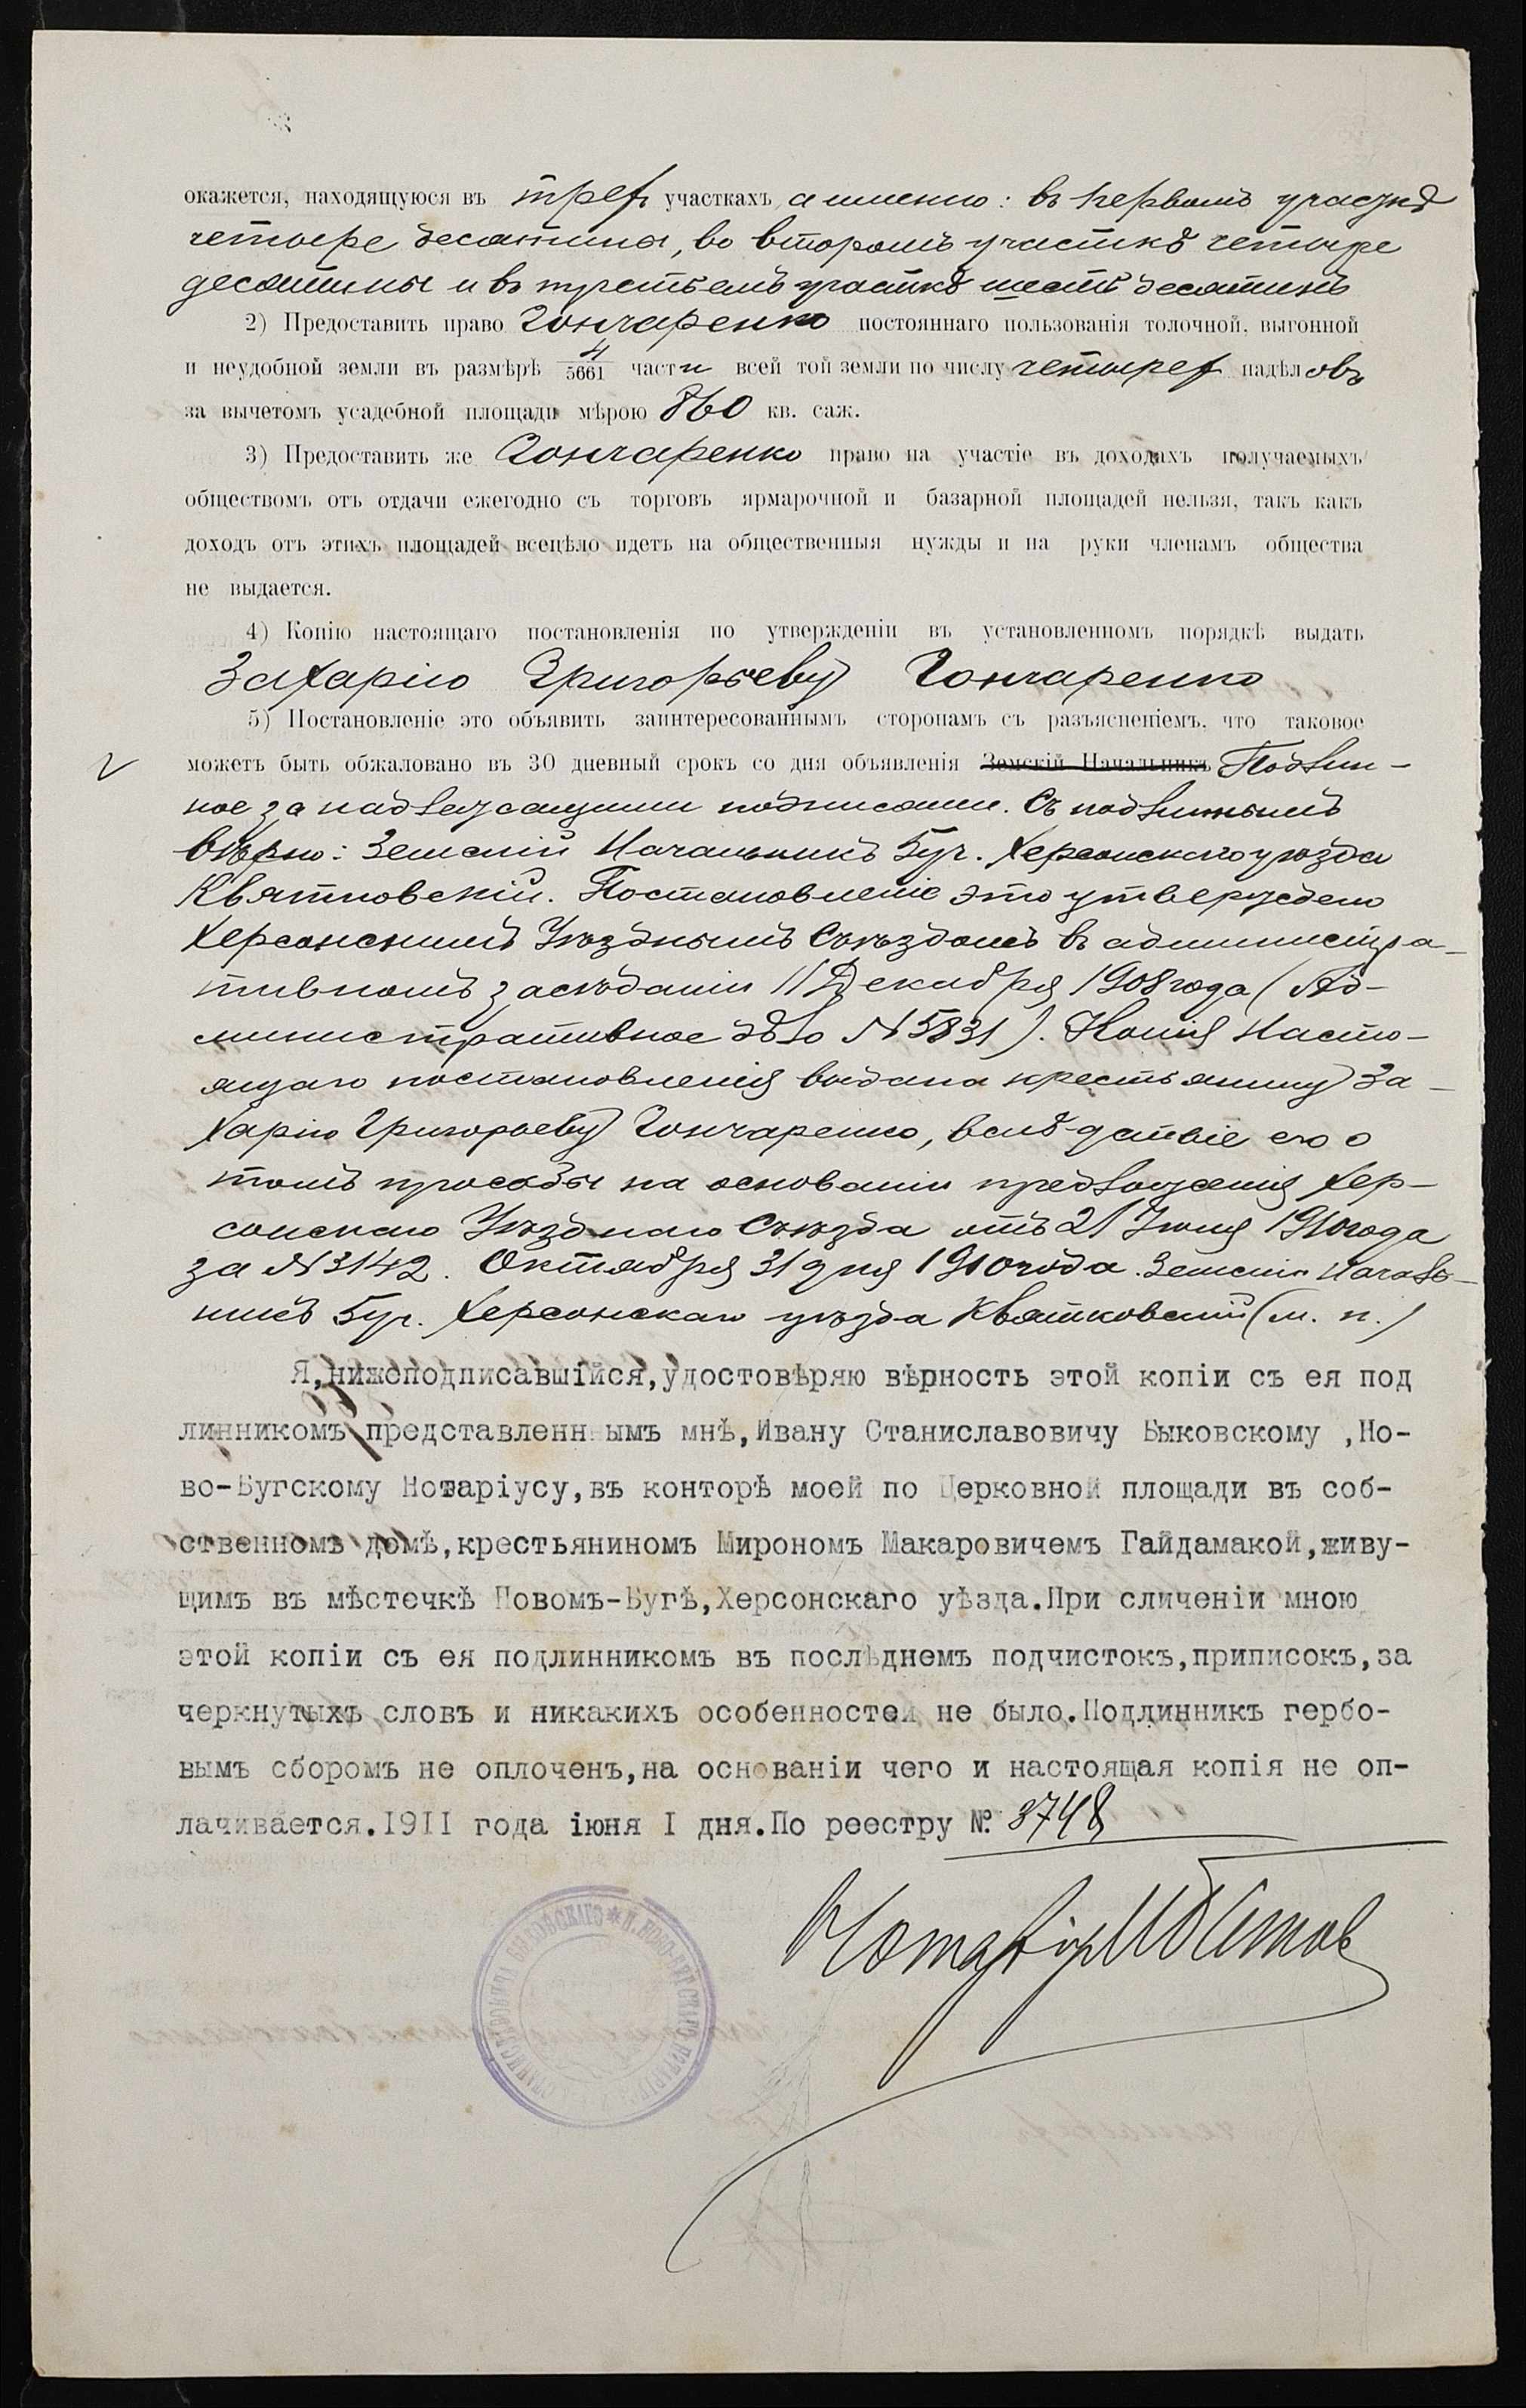 окажется, находящуюся въ трехъ участкахъ а именно: въ первомъ участкѣ
четыре десятины, во второмъ участкѣ четыре
десятины и въ третьемъ участкѣ шесть десятинъ
2) Предоставить право Гончаренко постояннаго пользованія толочной, выгонной
и неудобной земли въ размѣрѣ 4/5661 части всей той земли по числу четырех надѣловъ
за вычетомъ усадебной площади мѣрою 860 кв. саж.
3) Предоставить же Гончаренко право на участіе въ доходахъ получаемыхъ
обществомъ отъ отдачи ежегодно съ торговъ ярмарочной и базарной площадей нельзя, такъ какъ
доходъ отъ этихъ площадей всецѣло идетъ на общественныя нужды и на руки членамъ общества
не выдается.
4) Копію настоящаго постановленія по утвержденіи въ установленномъ порядкѣ выдать
Захарію Григорьеву Гончаренко
5) Постановленіе это объявить заинтересованнымъ сторонамъ съ разъясненіемъ, что таковое
можетъ быть обжаловано въ 30 дневный срокъ со дня объявленія Земскій Начальникъ Подлин-
ное за надлежащими подписями. Съ подлиннымъ
вѣрно: Земскій Начальникъ 5 уч. Херсонскаго уѣзда
Квятковскій. Постановленіе это утверждено
Херсонскимъ Уѣзднымъ Съѣздомъ въ администра-
тивномъ засѣданіи 11 Декабря 1908 года (Ад-
министративное дѣло № 5831). Копія насто-
ящаго постановленія выдана крестьянину За-
харію Григорьеву Гончаренко, вслѣдствіе его о
томъ просьбы на основаніи предложенія Хер-
сонскаго Уѣзднаго Съѣзда отъ 21 Іюля 1910 года
за № 3142. Октября 31 дня 1910 года. Земскій Началь-
никъ 5 уч. Херсонскаго уѣзда Квятковскій (м. п.)
Я, нижеподписавшійся, удостовѣряю вѣрность этой копіи съ ея под
линникомъ представленнымъ мнѣ, Ивану Станиславовичу Быковскому ,Но-
во-Бугскому Нотаріусу, въ конторѣ моей по Церковной площади въ соб-
ственномъ домѣ, крестьяниномъ Мирономъ Макаровичемъ Гайдамакой, живу-
щимъ въ мѣстечкѣ Новомъ-Бугѣ, Херсонскаго уѣзда. При сличеніи мною
этой копіи съ ея подлинникомъ въ послѣднемъ подчистокъ, приписокъ, за
черкнутыхъ словъ и никакихъ особенностей не было. Подлинникъ гербо-
вымъ сборомъ не оплоченъ, на основаніи чего и настоящая копія не оп-
лачивается. 1911 года іюня I дня. По реестру № 3748
Нотаріус